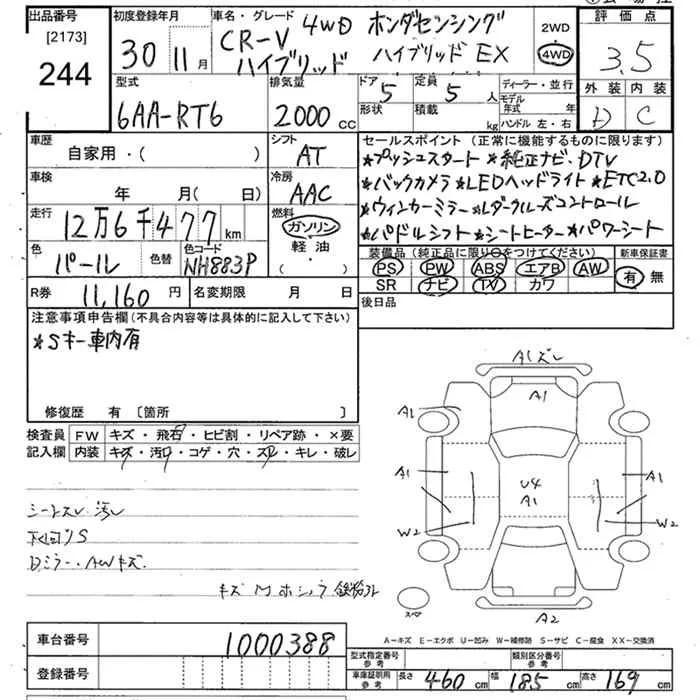 出品番号 初度登録年月 車名・グレード 4WD ホンダセンシング 2WD 評価点
[2173] 30 11月 CR-V ハイブリッド ハイブリッド EX 4WD 3.5
244
型式 排気量 ドア 5 定員 5人 ディーラー・並行 外装 内装
6AA-RT6 2000 cc 形状 積載 kg モデル年式 年 D C
ハンドル 左・右
車歴 シフト セールスポイント (正常に機能するものに限ります)
自家用・( ) AT *プッシュスタート *純正ナビ・DTV
車検 冷房 *バックカメラ *LEDヘッドライト *ETC2.0
年 月(日) AAC *ウィンカーミラー *レダークルーズコントロール
走行 12万6千477km 燃料 ガソリン *パドルシフト *シートヒーター *パワーシート
色 パール 色替 色コード NH883P 軽油・( ・ ) 装備品 (純正品に限り○をつけてください) 新車保証書
PS PW ABS エアB AW 有 無
SR ナビ TV カワ
R券 11,160円 名変期限 月 日 後日品
注意事項申告欄 (不具合内容等は具体的に記入して下さい)
*Sキー車内有
修復歴 有 [箇所 ]
A1ズレ
A1
A1
A1 U4 A1 A1
W2 W2
A2
検査員 FW キズ・飛石・ヒビ割・リペア跡・×要
記入欄 内装 キズ・汚れ・コゲ・穴・スレ・キレ・破レ
シートスレ 汚レ
下回りS
Dミラー・AWキズ
スペア
A-キズ E-エクボ U-凹み W-補修跡 S-サビ C-腐食 XX-交換済
車台番号 1000388 型式指定番号 参考 類別区分番号 参考
登録番号 車庫証明用 参考 長さ 460 cm 幅 185 cm 高さ 169 cm